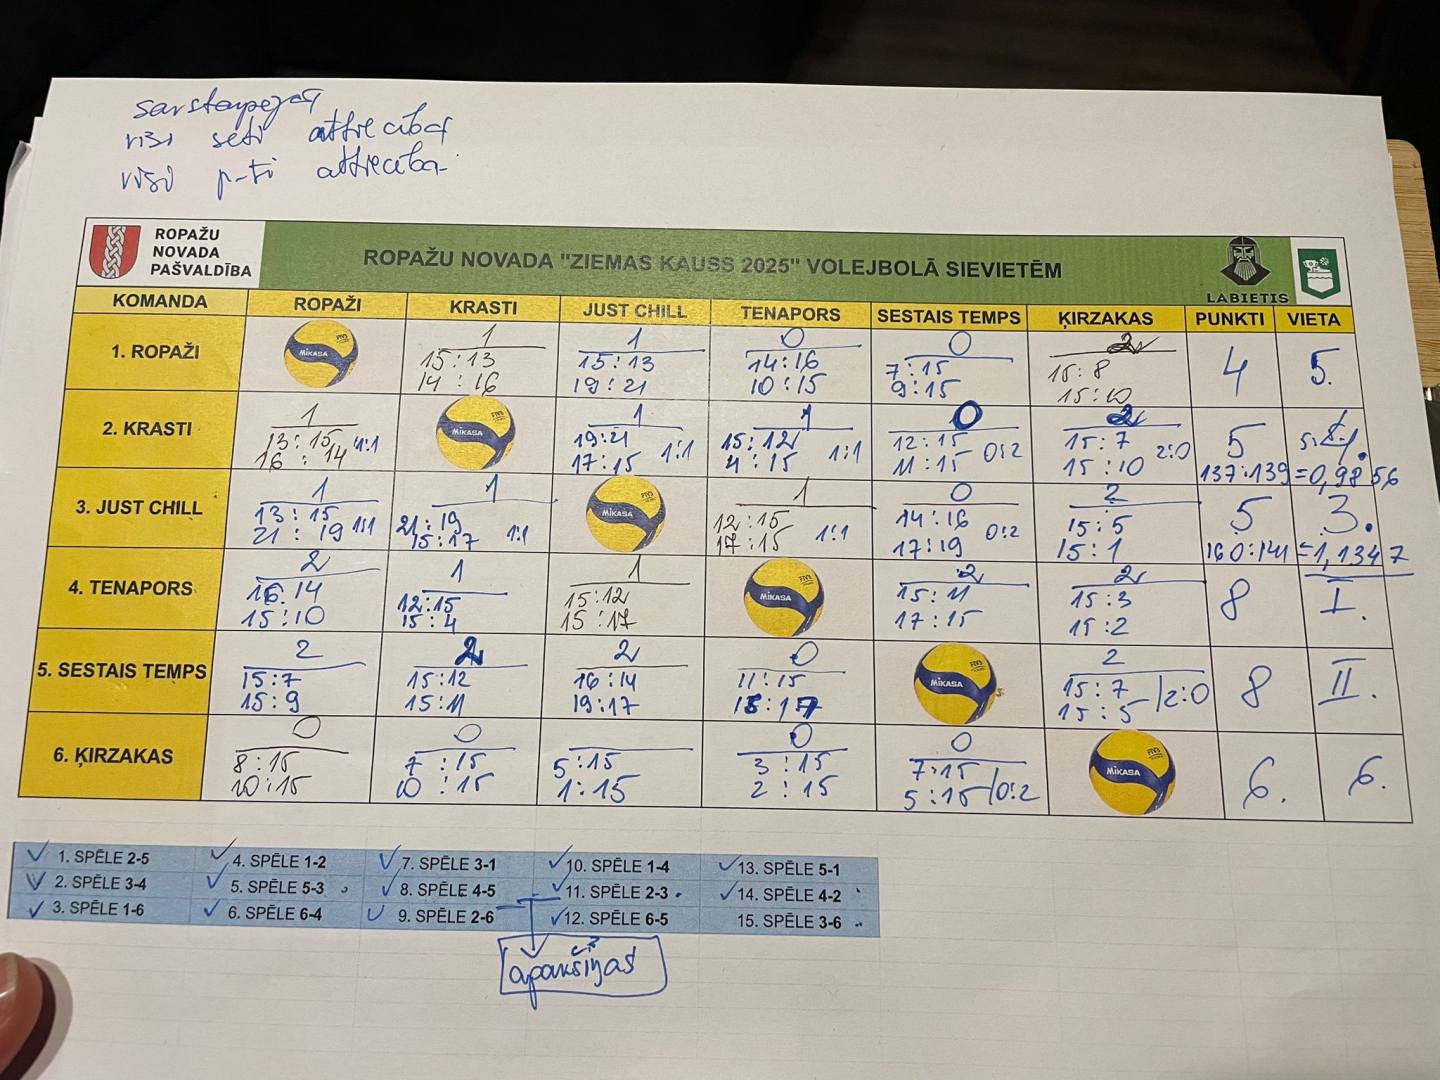 sarstarpējā
visi seti attiecība
visi p-ti attiecība.
ROPAŽU
NOVADA
PAŠVALDĪBA
ROPAŽU NOVADA "ZIEMAS KAUSS 2025" VOLEJBOLĀ SIEVIETĒM
LABIETIS
KOMANDA ROPAŽI KRASTI JUST CHILL TENAPORS SESTAIS TEMPS ĶIRZAKAS PUNKTI VIETA
1. ROPAŽI MIKASA 1 1 0 0 2 4 5.
15:13 15:13 14:16 7:15 15:8
14:16 19:21 10:15 9:15 15:10
2. KRASTI 1 MIKASA 1 1 0 2 5
13:15 19:21 15:12 12:15 15:7
16:14 1:1 17:15 1:1 4:15 1:1 11:15 0:2 15:10 2:0 137:139 =0,9856
3. JUST CHILL 1 1 MIKASA 1 0 2 5 3.
13:15 21:19 12:15 14:16 15:5
21:19 1:1 15:17 1:1 17:15 1:1 17:19 0:2 15:1 160:141 =1,1347
4. TENAPORS 2 1 1 MIKASA 2 2 8 I.
16:14 12:15 15:12 15:11 15:3
15:10 15:4 15:17 17:15 15:2
5. SESTAIS TEMPS 2 2 2 0 MIKASA 2 8 II.
15:7 15:12 16:14 11:15 15:7
15:9 15:11 19:17 15:17 15:5 2:0
6. ĶIRZAKAS 0 0 0 0 MIKASA 6. 6.
8:15 7:15 5:15 3:15 7:15
10:15 10:15 1:15 2:15 5:15 0:2
1. SPĒLE 2-5 4. SPĒLE 1-2 7. SPĒLE 3-1 10. SPĒLE 1-4 13. SPĒLE 5-1
2. SPĒLE 3-4 5. SPĒLE 5-3 8. SPĒLE 4-5 11. SPĒLE 2-3 14. SPĒLE 4-2
3. SPĒLE 1-6 6. SPĒLE 6-4 9. SPĒLE 2-6 12. SPĒLE 6-5 15. SPĒLE 3-6
apakšiņas